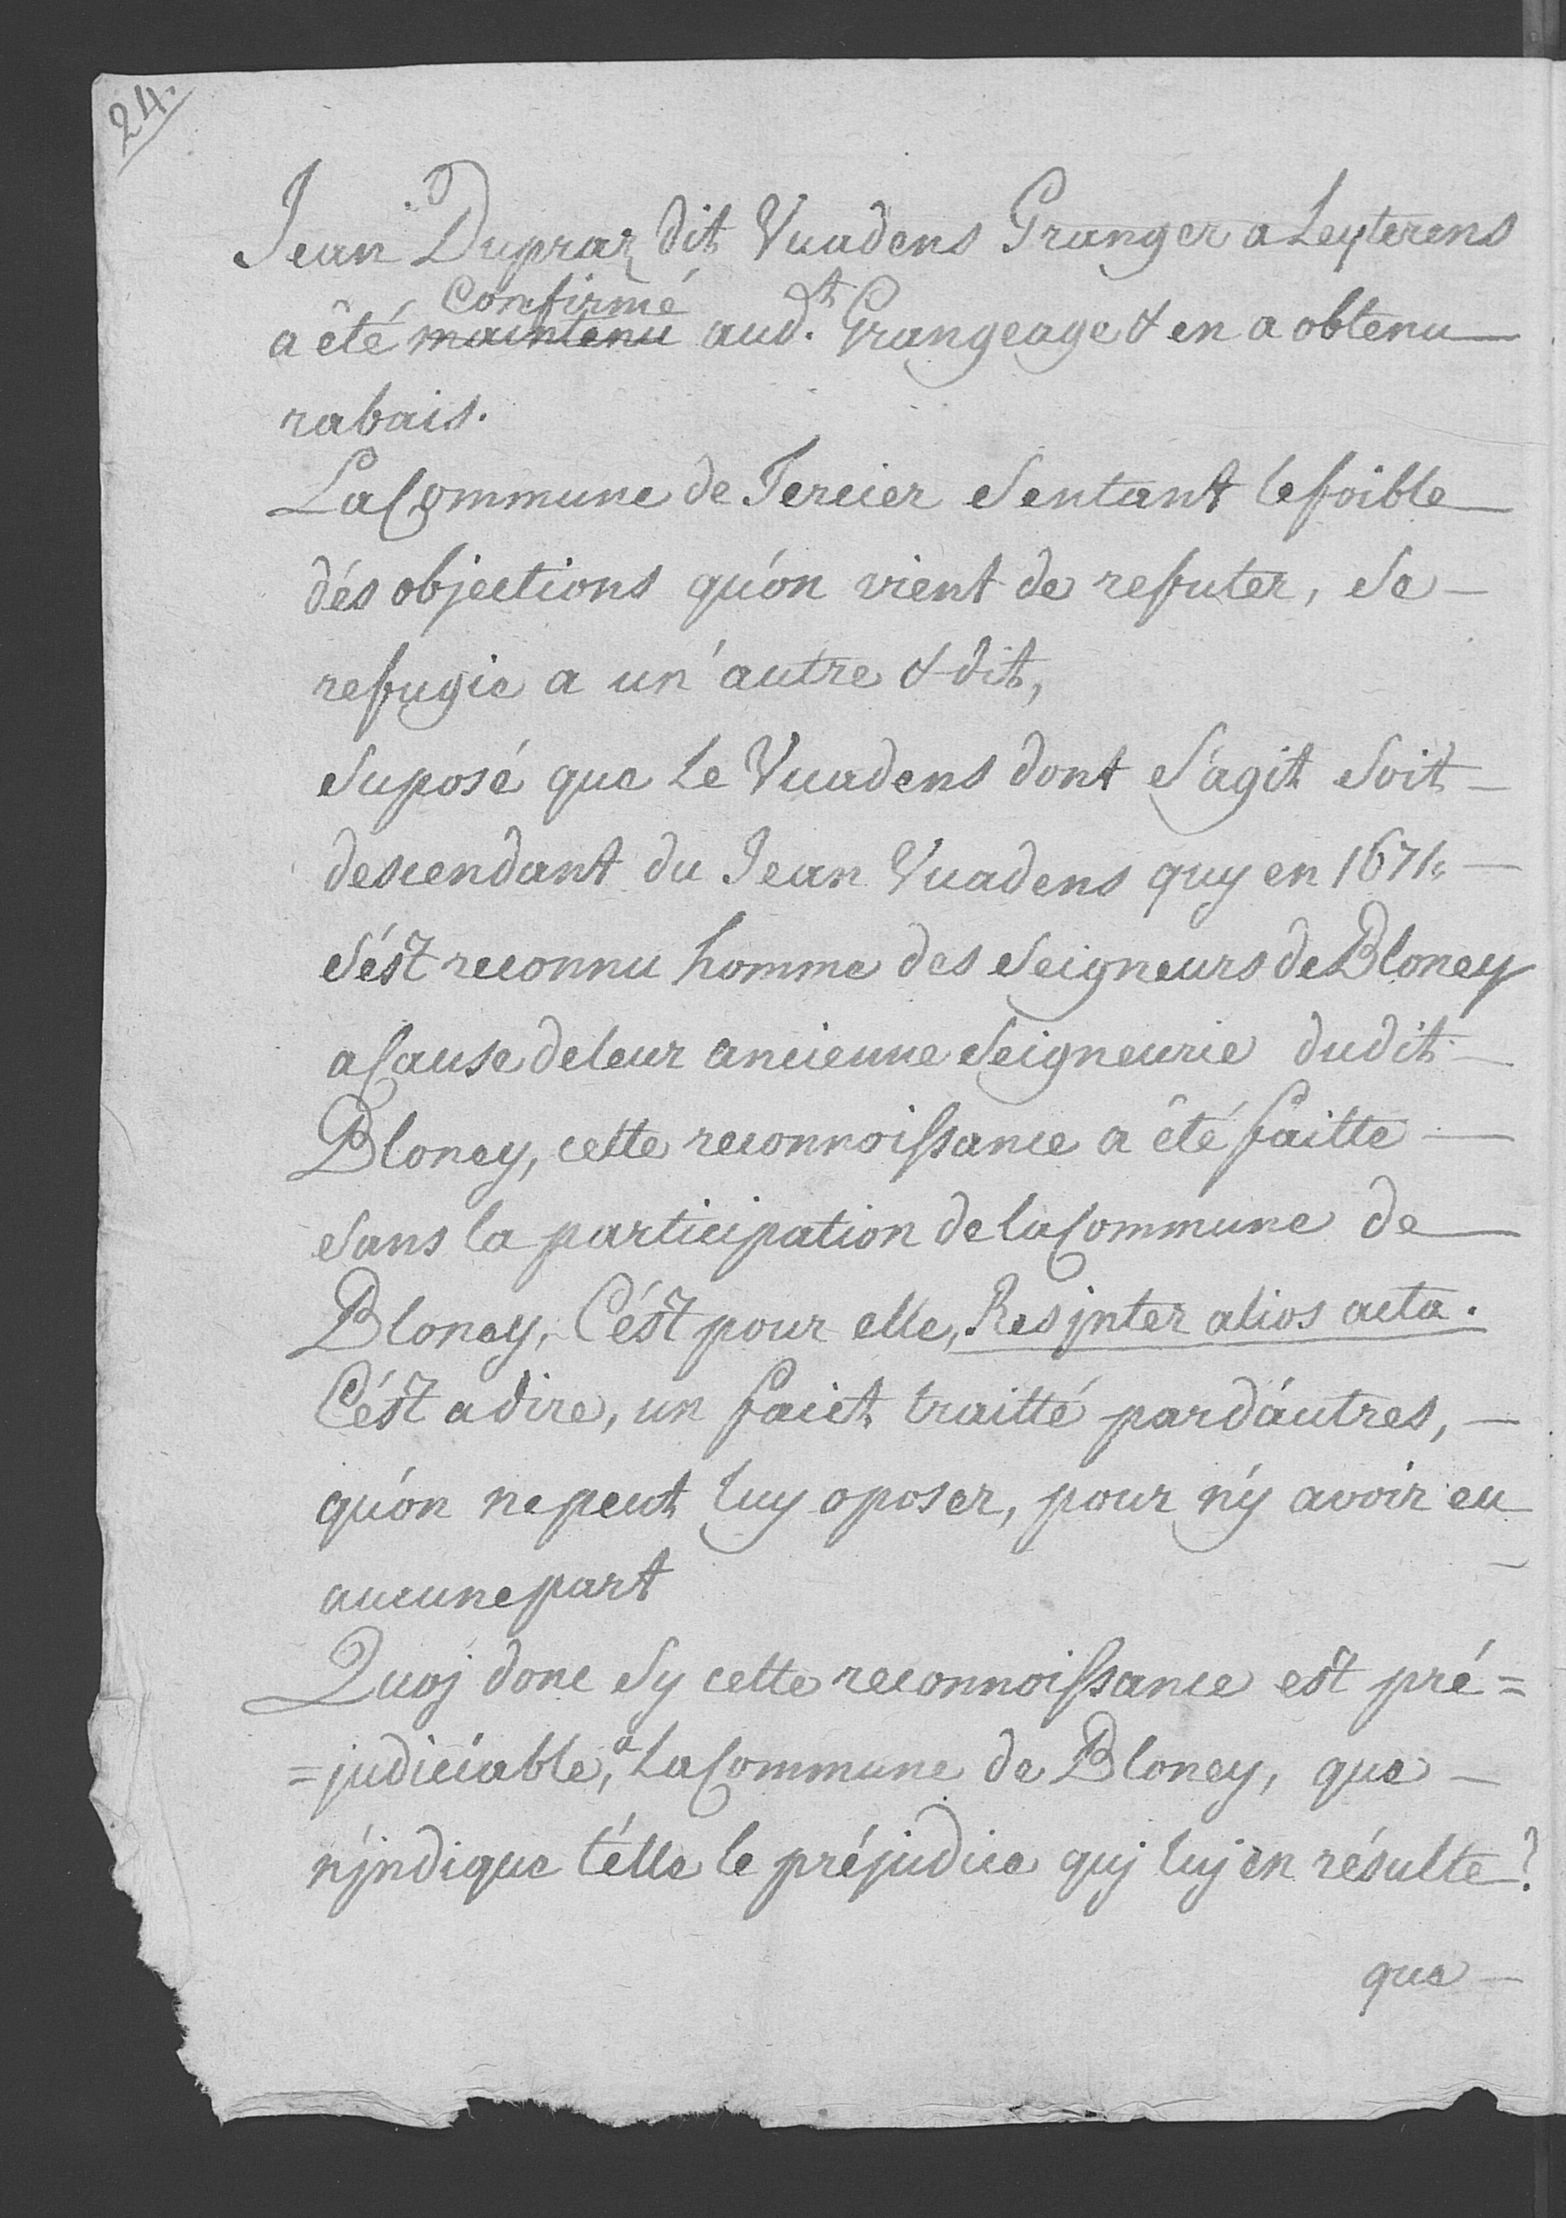 24.
Jean Dupraz dit Vuadens Granger a Leyterens
confirmé
a êté maintenu aud.t Grangeage & en a obtenu
rabais.
La Commune de Tercier sentant le foible
dés objections qu'on vient de refuter, se
refugie a un' autre & dit,
suposé que Le Vuadens dont s'agit soit
descendant du Jean Vuadens quy en 1674
s'ést reconnu homme des seigneurs de Bloney
a Cause de leur ancienne seigneurie dudit
Bloney, cette reconnoissance a êté faitte
sans la participation de la Commune de
Bloney, C'ést pour elle, Res jnter alios acta.
C'ést a dire, un faict traitté par d'autres,
qu'on ne peut luy oposer, pour n'y avoir eu
aucune part
Quoj donc sy cette reconnoissance est pré=
=judiciable, a La Commune de Bloney, que
n'jndique t'elle le préjudice quj luj en résulte?
que